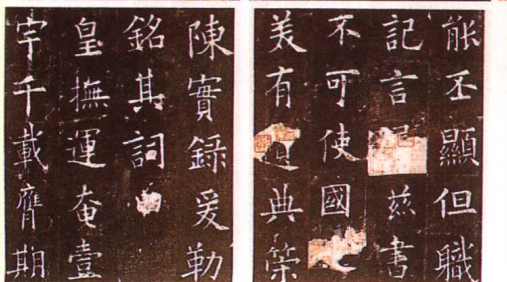 能丕顯但職
記言茲書
不可使國
美有遺典策
陳實録爰勒
銘其詞
皇撫運奄壹
宇千載膺期